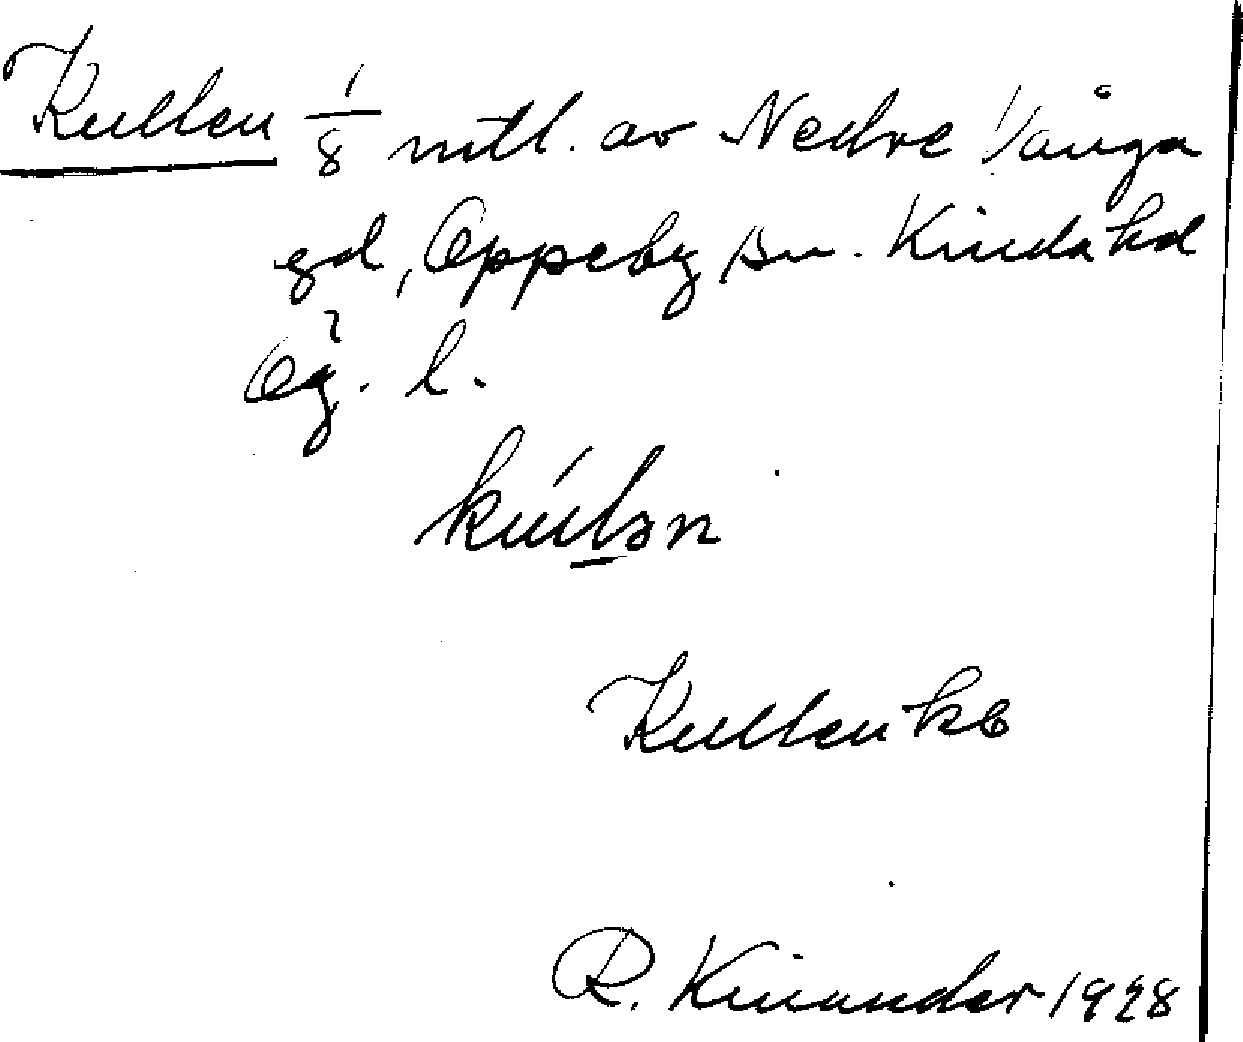 Kullen 1/8 mtl. av Nedre Vånga
gd, Oppeby sn. Kinda hd
Ög. l.
kúlən
Kullen ke
R. Kinander 1928